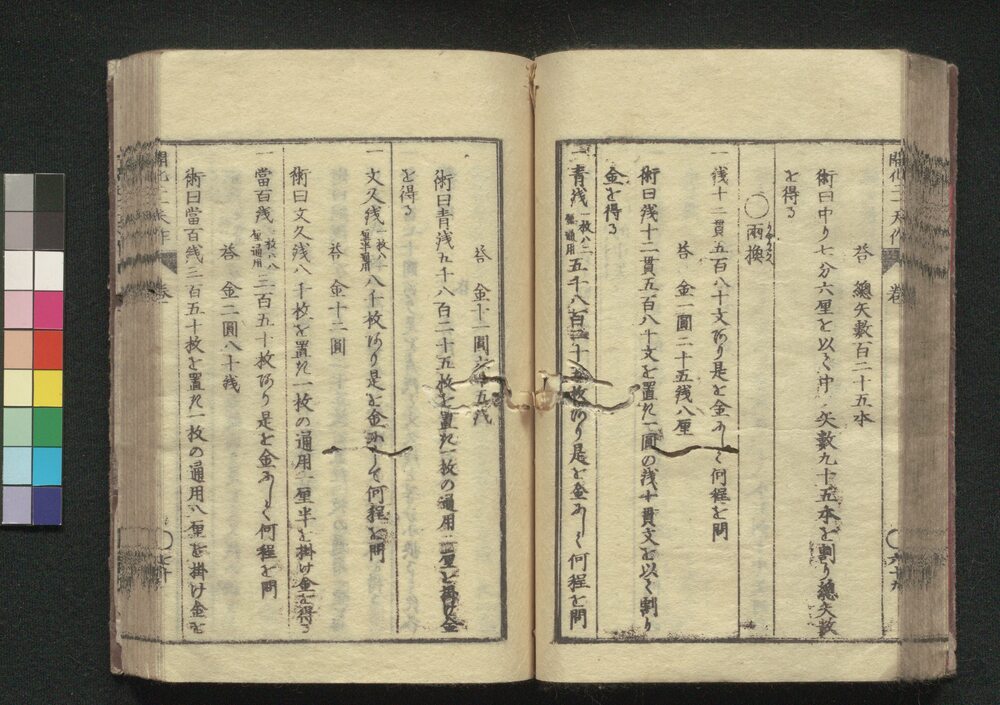 答 總矢數百二十五本
術曰中り七分六厘を以て中り矢數九十五本を割り總矢數
を得る
〇両換
りやうがへ
一 銭十二貫五百八十文あり是を金にして何程と問
答 金一圓二十五銭八厘
術曰銭十二貫五百八十文を置き一圓の銭十貫文を以て割り
金を得る
一 青銭一枚ハ二厘通用五千八百二十五枚あり是を金にして何程と問
開化二一天作 巻一 〇六十九
答 金十一圓六十五銭
術曰青銭五千八百二十五枚を置き一枚の通用二厘を掛け金
を得る
一 文久銭一枚ハ一厘半通用八千枚あり是を金にして何程と問
答 金十二圓
術曰文久銭八千枚を置き一枚の通用一厘半を掛け金を得る
一 當百銭一枚ハ八厘通用三百五十枚あり是を金にして何程と問
答 金二圓八十銭
術曰當百銭三百五十枚を置き一枚の通用八厘を掛け金を
開化二一天作 巻一 〇七十